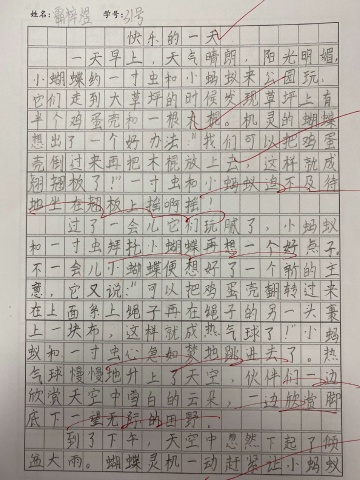 姓名：霸梓煜 学号：31号
快乐的一天
一天早上，天气晴朗，阳光明媚，
小蝴蝶约一寸虫和小蚂蚁来公园玩。
它们走到大草坪的时候发现草坪上有
半个鸡蛋壳和一根木棍。机灵的蝴蝶
想出了一个好办法："我们可以把鸡蛋
壳倒过来再把木棍放上去，这样就成
翘翘板了！"一寸虫和小蚂蚁迫不及待
地坐在翘板上摇啊摇！
过了一会儿它们玩腻了，小蚂蚁
和一寸虫拜托小蝴蝶再想一个好点子。
不一会儿小蝴蝶便想好了一个新的主
意，它又说："可以把鸡蛋壳翻转过来
在上面系上绳子再在绳子的另一头裹
上一块布，这样就成热气球了！"小蚂
蚁和一寸虫心急如焚地跳进去了。热
气球慢慢地升上了天空，伙伴们一边
欣赏天空中雪白的云朵，一边欣赏脚
底下一望无际的田野。
到了下午，天空中忽然下起了倾
盆大雨。蝴蝶灵机一动赶紧让小蚂蚁